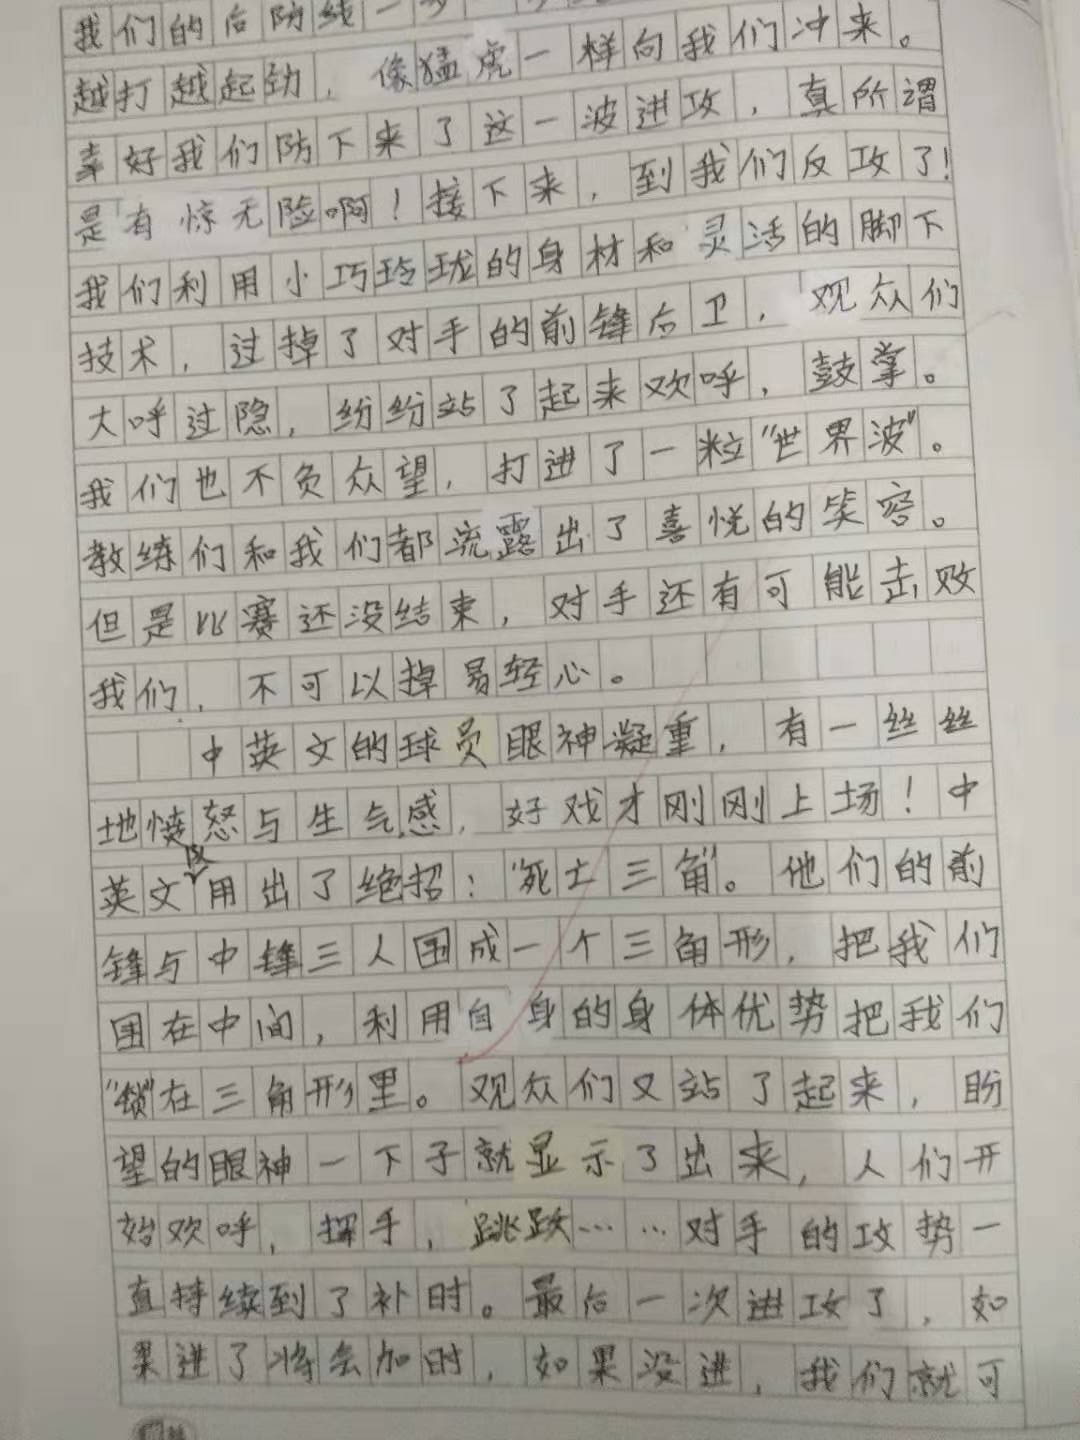 我们的后防线一步
越打越起劲，像猛虎一样向我们冲来。
幸好我们防下来了这一波进攻，真所谓
是有惊无险啊！接下来，到我们反攻了！
我们利用小巧玲珑的身材和灵活的脚下
技术，过掉了对手的前锋后卫，观众们
大呼过隐，纷纷站了起来欢呼，鼓掌。
我们也不负众望，打进了一粒“世界波”。
教练们和我们都流露出了喜悦的笑容。
但是比赛还没结束，对手还有可能击败
我们，不可以掉易轻心。
中英文的球员眼神凝重，有一丝丝
地愤怒与生气感，好戏才刚刚上场！中
英文又用出了绝招：“死亡三角”。他们的前
锋与中锋三人围成一个三角形，把我们
围在中间，利用自身的身体优势把我们
“锁”在三角形里。观众们又站了起来，盼
望的眼神一下子就显示了出来，人们开
始欢呼，挥手，跳跃……对手的攻势一
直持续到了补时。最后一次进攻了，如
果进了将会加时，如果没进，我们就可